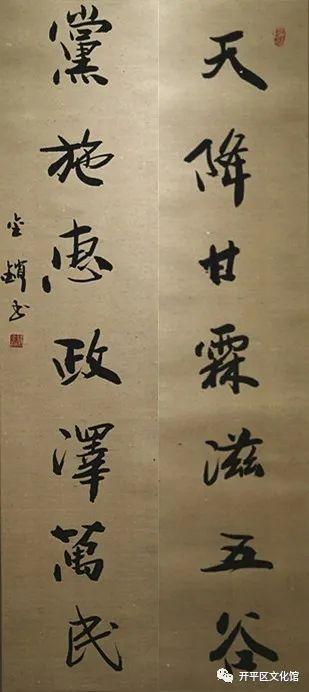 天降甘霖滋五谷
黨施惠政澤萬民
开平区文化馆